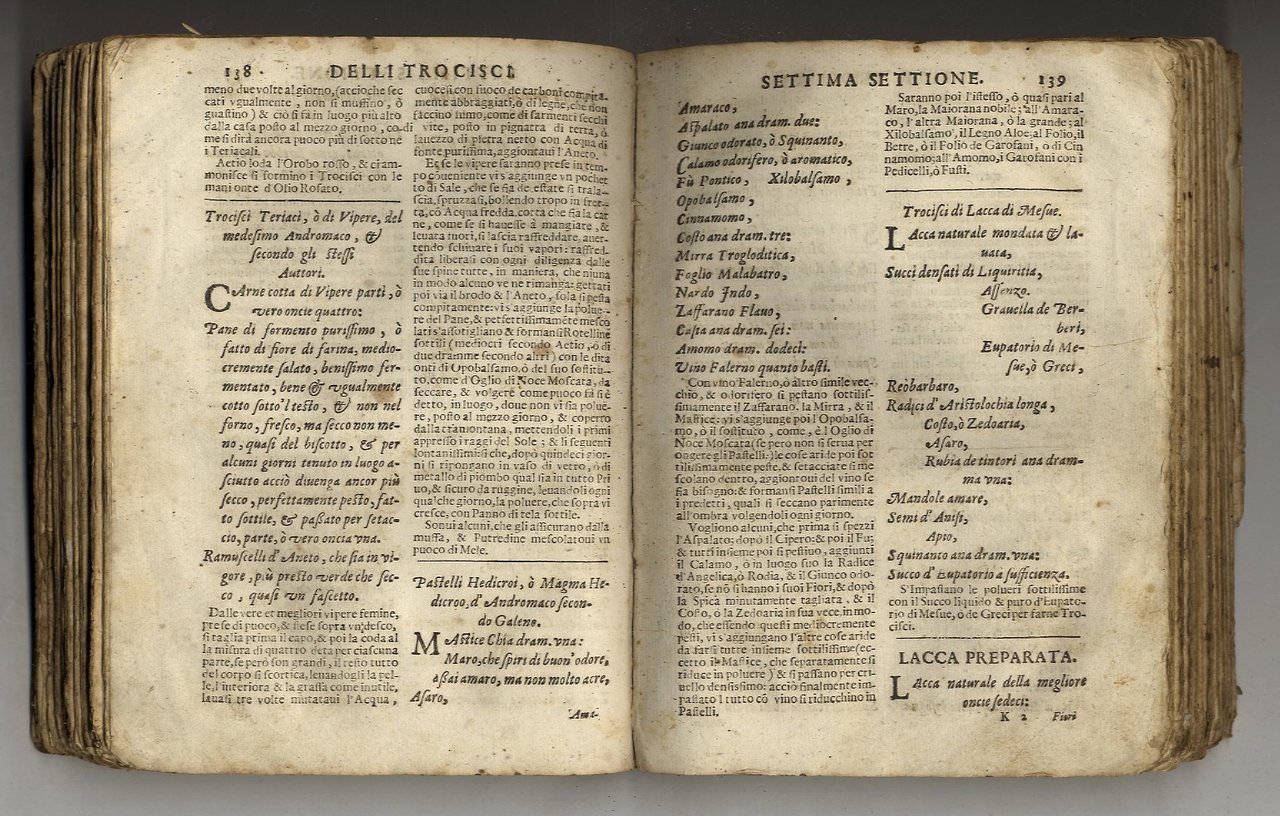 138. DELLI TROCISCI.
meno due volte al giorno, (acciòche sec
cati vgualmente, non si muffino, ò
guastino) & ciò si fà in luogo più alto
dalla casa posto al mezzo giorno, co-
me si dirà ancora puoco più di sotto ne
i Teriacali.
Aetio loda l'Orobo rosso, & ci am-
monisce si formino i Trocisci con le
mani onte d'Olio Rosato.
Trocisci Teriaci, ò di Vipere, del
medesimo Andromaco, &
secondo gli stessi
Auttori.
CArne cotta di Vipere parti, ò
vero oncie quattro:
Pane di formento purissimo, ò
fatto di fiore di farina, medio-
cremente salato, benissimo fer-
mentato, bene & vgualmente
cotto sotto'l testo, & non nel
forno, fresco, ma secco non me-
no, quasi del biscotto, & per
alcuni giorni tenuto in luogo a-
sciutto acciò diuenga ancor più
secco, perfettamente pesto, fat-
to sottile, & passato per setac-
cio, parte, ò vero oncia vna.
Ramuscelli d'Aneto, che sia in vi-
gore, più presto verde che sec-
co, quasi vn fascetto.
Dalle vere et megliori vipere femine,
prese di puoco, & stese sopra vn desco,
si taglia prima il capo, & poi la coda al
la misura di quattro deta per ciascuna
parte, se però son grandi, il resto tutto
del corpo si scortica, leuandogli la pel-
le, l'interiora & la grassa come inutile,
lauasi tre volte mutataui l'Acqua,
cuocesi con fuoco de carboni compita-
mente abbraggiati, ò di legne, che non
faccino fumo, come di sarmenti secchi
di vite, posto in pignatta di terra, ò
lauezzo di pietra netto con Acqua di
fonte purissima, aggiontaui l'Aneto.
Et se le vipere saranno prese in tem-
po coueniente vi s'aggiunge vn pochet
to di Sale, che se sia de estate si trala-
scia, spruzzasi, bollendo tropo in fret-
ta, cō Acqua fredda, cotta che sia la car
ne, come se si hauesse à mangiare, &
leuata fuori, si lascia raffreddare, auer-
tendo schiuare i suoi vapori: raffred-
dita liberasi con ogni diligenza dalle
sue spine tutte, in maniera, che niuna
in modo alcuno ve ne rimanga: gettasi
poi via il brodo & l'Aneto, sola si pesta
compitamente: vi s'aggiunge la polue-
re del Pane, & perfettissimamēte mesco
lati s'assotigliano & formansi Rotelline
sottili (mediocri secondo Aetio, ò di
due dramme secondo altri) con le dita
onti di Opobalsamo, ò del suo sostitu-
to, come d'Oglio di Noce Moscata, da
seccare, & volgere come puoco fà si è
detto, in luogo, doue non vi sia polue-
re, posto al mezzo giorno, & coperto
dalla tramontana, mettendoli i primi
appresso i raggi del Sole; & li seguenti
lontanissimi: si che, dopò quindeci gior-
ni si ripongano in vaso di vetro, ò di
metallo di piombo qual sia in tutto Pri
uo, & sicuro da ruggine, leuandoli ogni
qualche giorno, la poluere, che sopra vi
cresce, con Panno di tela sottile.
Sonui alcuni, che gli assicurano dalla
muffa, & Putredine mescolatoui vn
puoco di Mele.
Pastelli Hedicroi, ò Magma He-
dicroo, d'Andromaco secon-
do Galeno.
MAstice Chia dram. vna:
Maro, che spiri di buon'odore,
assai amaro, ma non molto acre,
Asaro,
Ama-
SETTIMA SETTIONE. 139
Amaraco,
Aspalato ana dram. due:
Giunco odorato, ò Squinanto,
Calamo odorifero, ò aromatico,
Fù Pontico, Xilobalsamo,
Opobalsamo,
Cinnamomo,
Costo ana dram. tre:
Mirra Trogloditica,
Foglio Malabatro,
Nardo Indo,
Zaffarano Flauo,
Casia ana dram. sei:
Amomo dram. dodeci:
Vino Falerno quanto basti.
Con vino Falerno, ò altro simile vec-
chio, & odorifero si pestano sottilis-
simamente il Zaffarano, la Mirra, & il
Mastice: vi s'aggiunge poi l'Opobalsa-
mo, ò il sostituto, come, è l'Oglio di
Noce Moscata (se però non si serua per
ongere gli Pastelli:) le cose aride poi sot
tilissimamente peste, & setacciate si me
scolano dentro, aggiontoui del vino se
fia bisogno: & formansi Pastelli simili a
i predetti, quali si seccano parimente
all'ombra volgendoli ogni giorno.
Vogliono alcuni, che prima si spezzi
l'Aspalato; dopò il Cipero: & poi il Fu:
& tutti insieme poi si pestino, aggiunti
il Calamo, ò in luogo suo la Radice
d'Angelica, ò Rodia, & il Giunco odo-
rato, se nō si hanno i suoi Fiori, & dopò
la Spica minutamente tagliata, & il
Costo, ò la Zedoaria in sua vece, in mo-
do, che essendo questi mediocremente
pesti, vi s'aggiungano l'altre cose aride
da farsi tutte insieme sottilissime (ec-
cetto il Mastice, che separatamente si
riduce in poluere) & si passano per cri-
uello densissimo: acciò finalmente im-
pastato l tutto cō vino si riducchino in
Pastelli.
Saranno poi l'istesso, ò quasi pari al
Maro, la Maiorana nobile; all'Amara-
co, l'altra Maiorana, ò la grande; al
Xilobalsamo, il Legno Aloe; al Folio, il
Betre, ò il Folio de Garofani, ò di Cin
namomo; all'Amomo, i Garofani con i
Pedicelli, ò Fusti.
Trocisci di Lacca di Mesue.
LAcca naturale mondata & la-
uata,
Succi densati di Liquiritia,
Assenzo.
Grauella de Ber-
beri,
Eupatorio di Me-
sue, ò Greci,
Reòbarbaro,
Radici d'Aristolochia longa,
Costo, ò Zedoaria,
Asaro,
Rubia de tintori ana dram-
ma vna:
Mandole amare,
Semi d'Anisi,
Apio,
Squinanto ana dram. vna:
Succo d'Eupatorio a sufficienza.
S'Impastano le polueri sottilissime
con il Succo liquido & puro d'Eupato-
rio di Mesue, ò de Greci per farne Tro-
cisci.
LACCA PREPARATA.
LAcca naturale della megliore
oncie sedeci:
K 2 Fiori